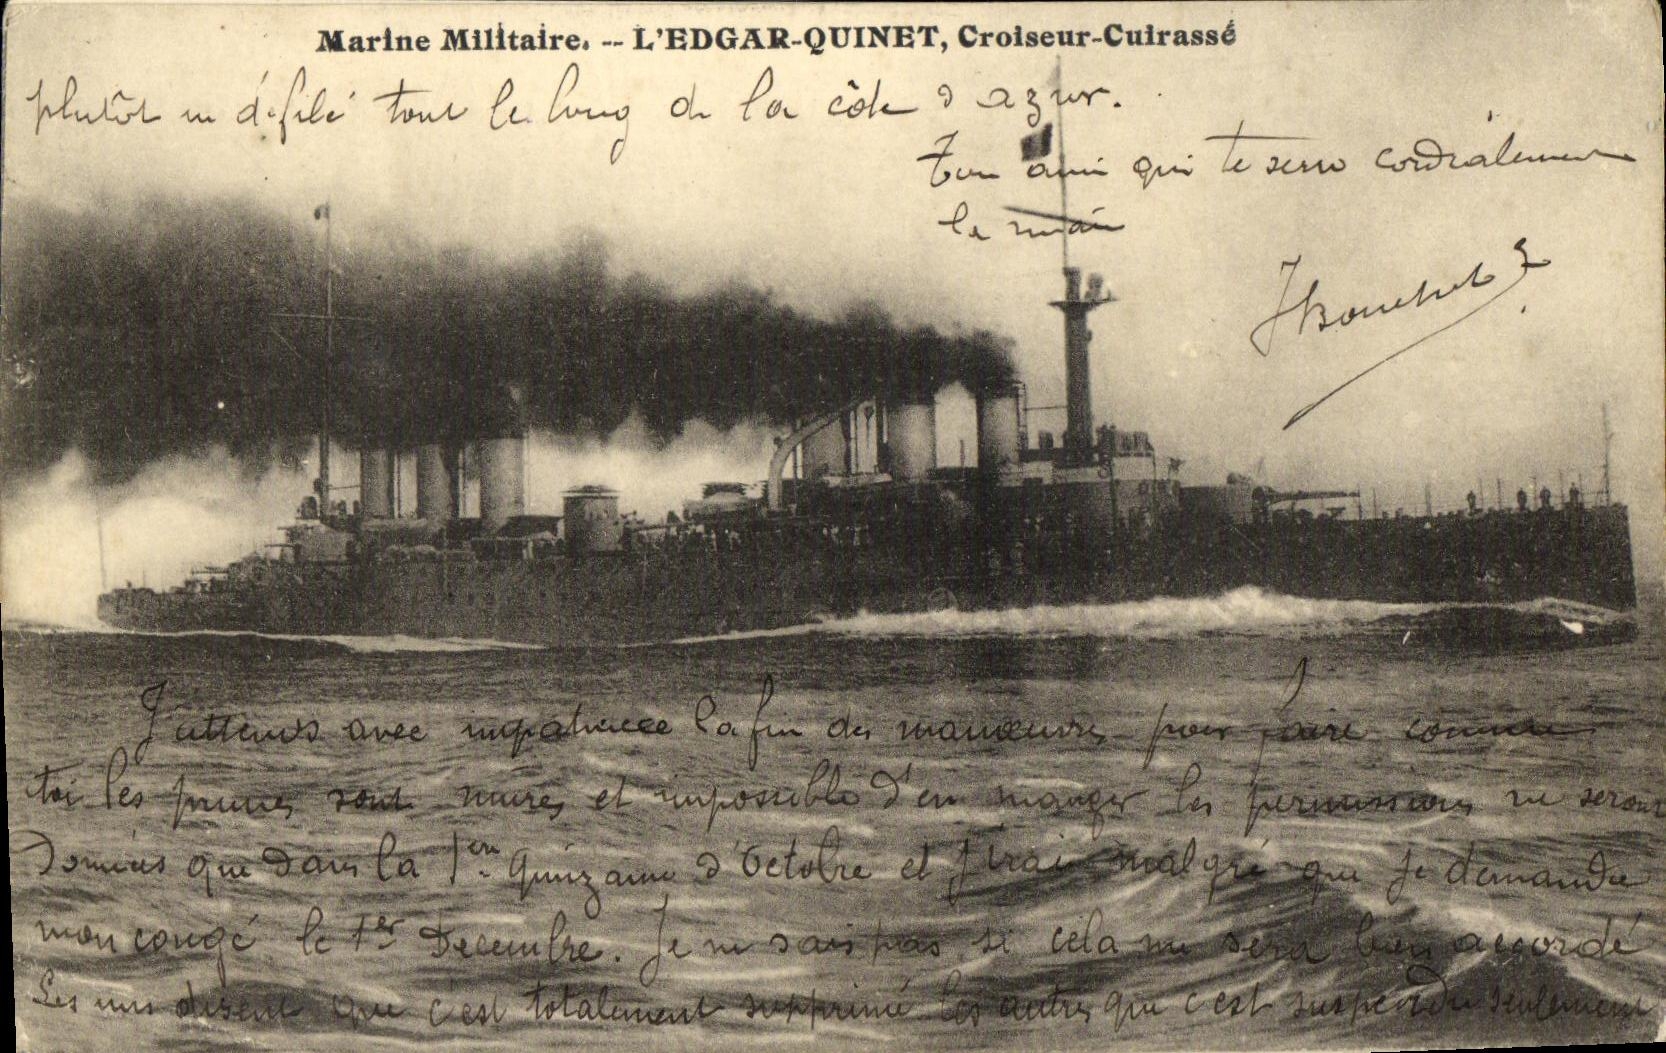 Marine Militaire. -- L'EDGAR-QUINET, Croiseur-Cuirassé
plutôt un défilé tout le long de la côte d azur.
Ton ami qui te serre cordialement
la main
J'attends avec impatience la fin des manœuvres pour faire comme
toi les prunes sont mûres et impossible d'en manger les permissions ne seront
Données que dans la 1ère quinzaine d'Octobre et j'irai malgré que je demande
mon congé le 1er Decembre. Je ne sais pas si cela me sera bien accordé
Les uns disent que c'est totalement supprimé les autres que c'est suspendu seulement